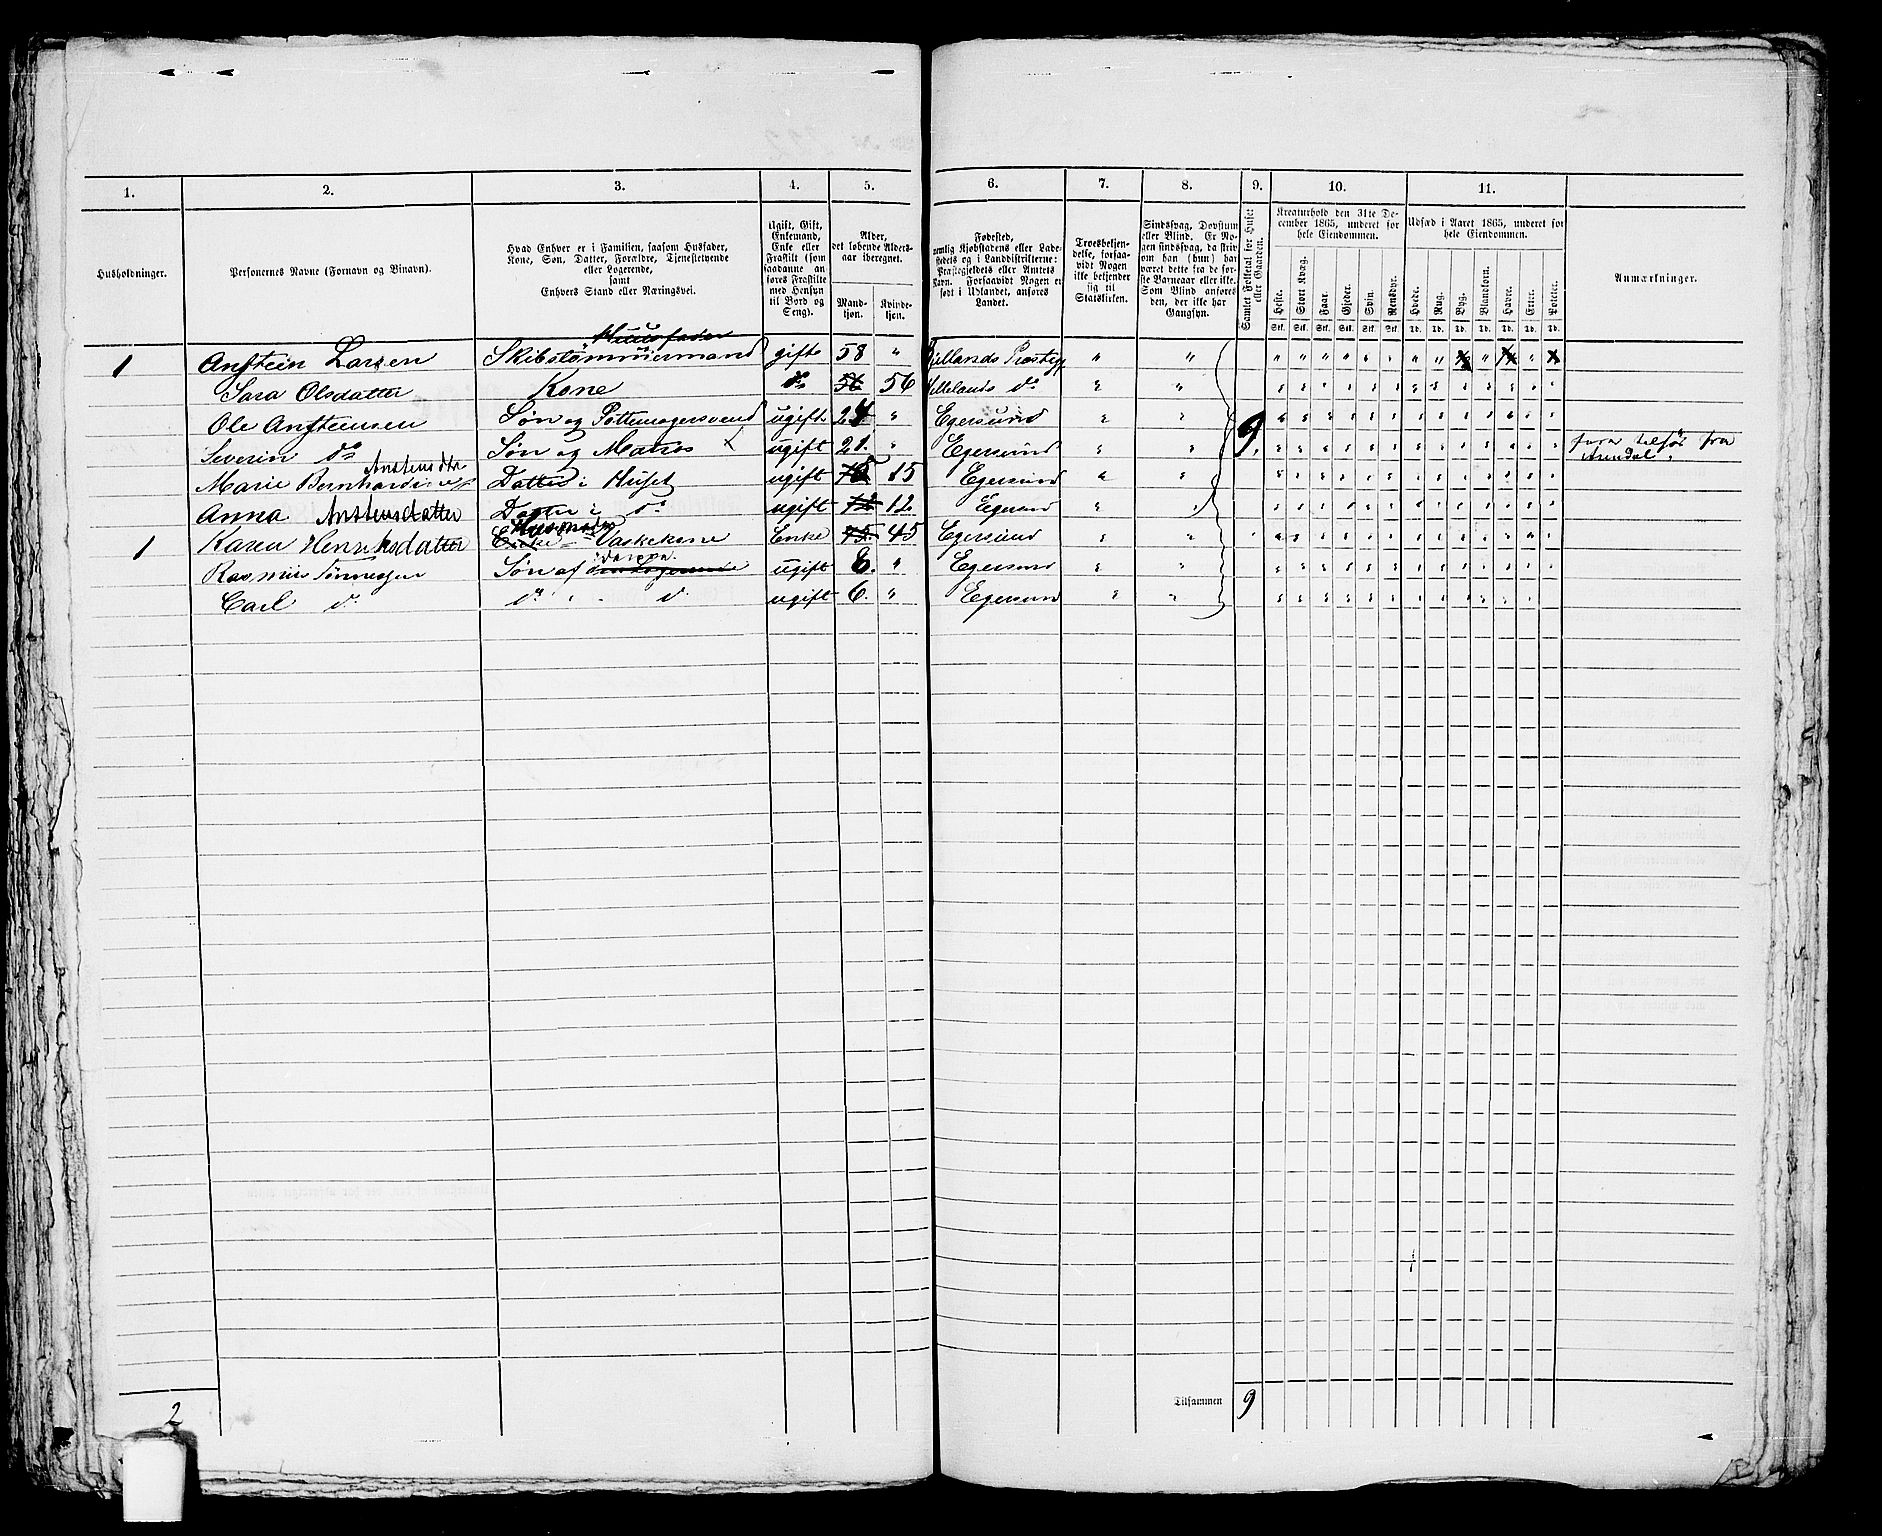 1. 2. 3. 4. 5. 6. 7. 8. 9. 10. 11.
Husholdninger.
Personernes Navne (Fornavn og Binavn).
Hvad Enhver er i Familien, saasom Husfader, Kone, Søn, Datter, Forældre, Tjenestetyende eller Logerende, samt Enhvers Stand eller Næringsvei.
Ugift, Gift, Enkemand, Enke eller Fraskilt (som saadanne anføres Fraskilte med Hensyn til Bord og Seng).
Alder, det løbende Aldersaar iberegnet.
Mandkjøn. Kvindekjøn.
Fødested, nemlig Kjøbstadens eller Ladestedets og i Landdistrikterne: Præstegjeldets eller Amtets Navn. Forsaavidt Nogen er født i Udlandet, anføres Landet.
Troesbekjendelse, forsaavidt Nogen ikke bekjender sig til Statskirken.
Sindssvag, Døvstum eller Blind. Er Nogen sindssvag, da skrives om han (hun) har været dette fra de første Barneaar eller ikke. Som Blind anføres den, der ikke har Gangsyn.
Samlet Folketal for Huset eller Gaarden.
Kreaturhold den 31te December 1865, underet for hele Eiendommen.
Udsæd i Aaret 1865, underet for hele Eiendommen.
Anmærkninger.
Heste. Stort Kvæg. Faar. Gjeder. Svin. Rensdyr. Hvede. Rug. Byg. Blandkorn. Havre. Erter. Poteter.
Stk. Stk. Stk. Stk. Stk. Stk. Td. Td. Td. Td. Td. Td. Td.
Huusfader
1 Anstein Larsen Skibstømmermand gift 58 " Præstegj
Sara Olsdatter Kone do 56 56 Hellelands do
Ole Ansteensen Søn og Pottemagersvend ugift 24 " Egersund
Severin do Søn og Matros × ugift 21. " Egersund 9. fra
Arendal.
Anstensdtr
Marie Bernhardine Datter i Huset ugift 15 Egersund
Anna Anstensdatter Datter i do ugift 12 12 Egersund
Husmoder
1 Karen Henriksdatter Enke Vaskekone Enke 45 45 Egersund
Rasmus Tønnessen Søn af ugift 8. " Egersund
Carl do do do ugift 6. " Egersund
2
Tilsammen 9